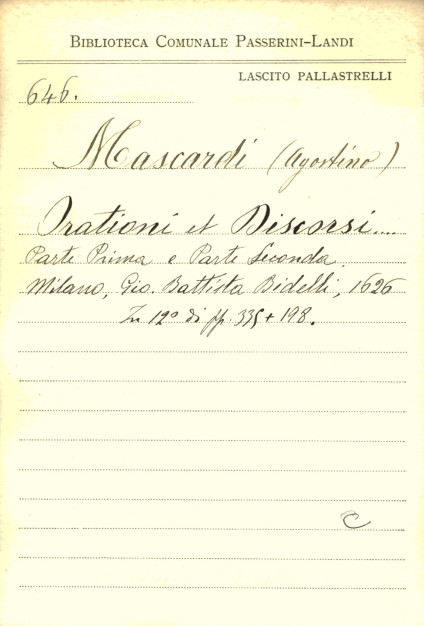 BIBLIOTECA COMUNALE PASSERINI-LANDI
LASCITO PALLASTRELLI
646.
Mascardi (Agostino)
Orationi et Discorsi....
Parte Prima e Parte Seconda.
Milano, Gio. Battista Bidelli, 1626
In 12º di pp. 335 + 198.
C